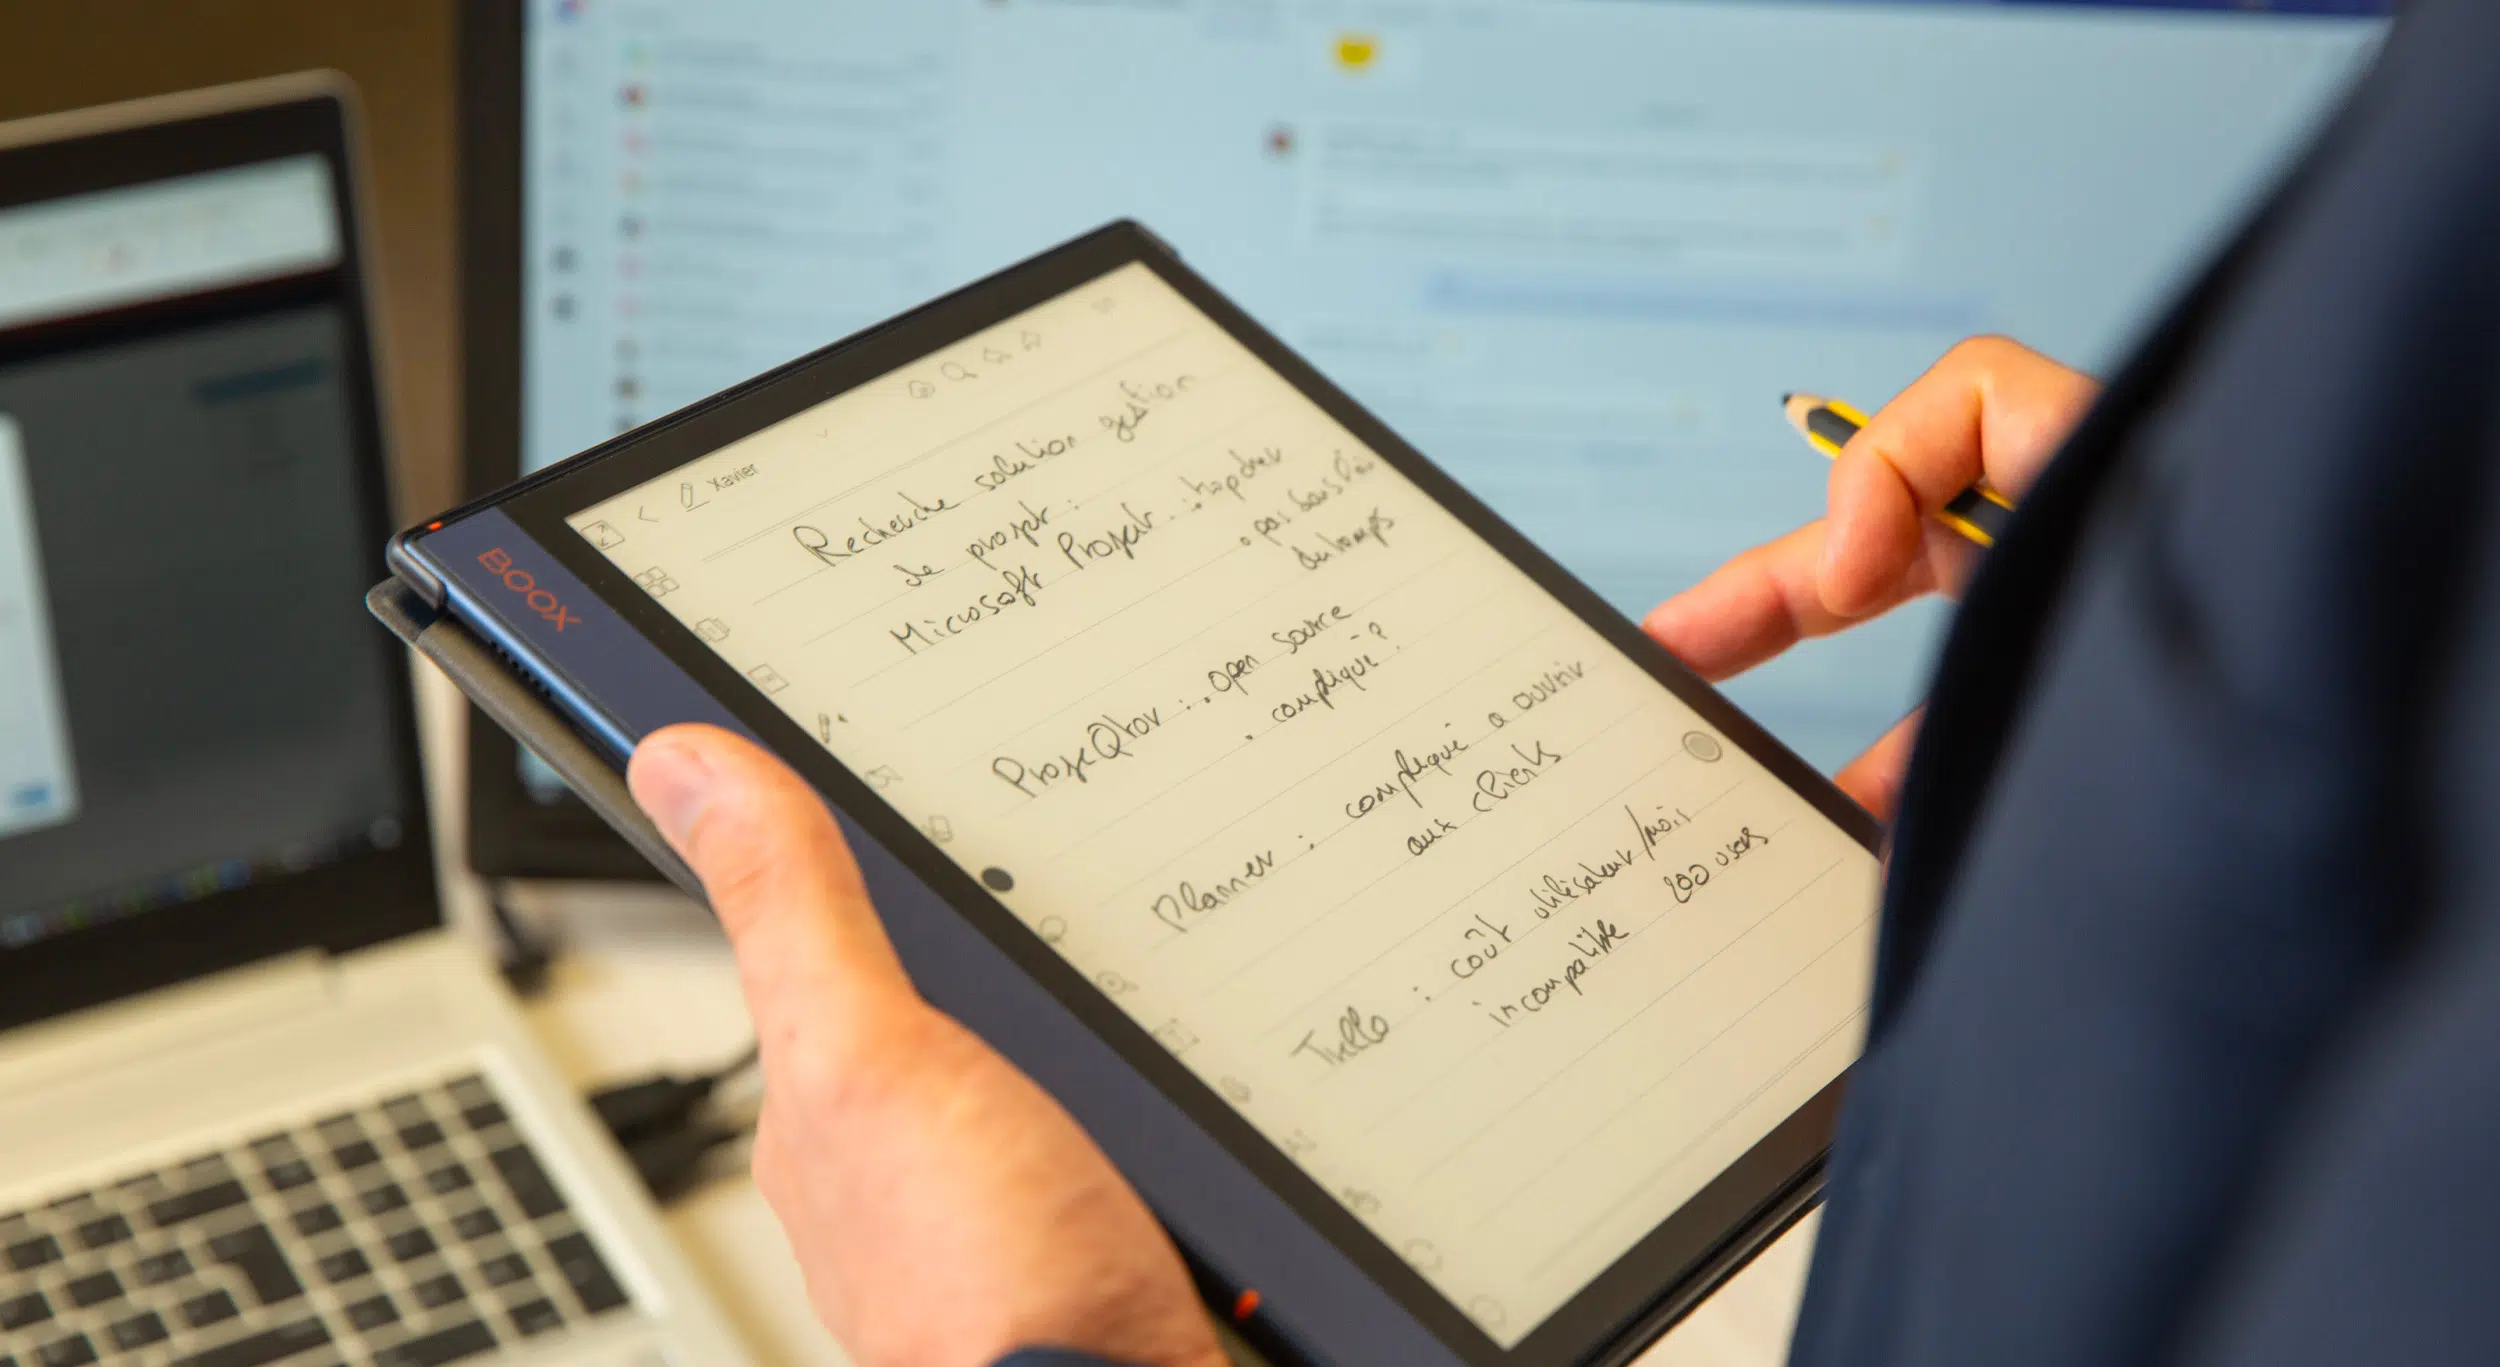 BOOX
Xavier
Recherche solution gestion
de projet :
Microsoft Projet : . trop cher
. pas
du temps
ProjeQtor : . open source
. compliqué ?
Planner : compliqué a ouvrir
aux clients
Trello : coût utilisateur/mois
incompatible 200 users